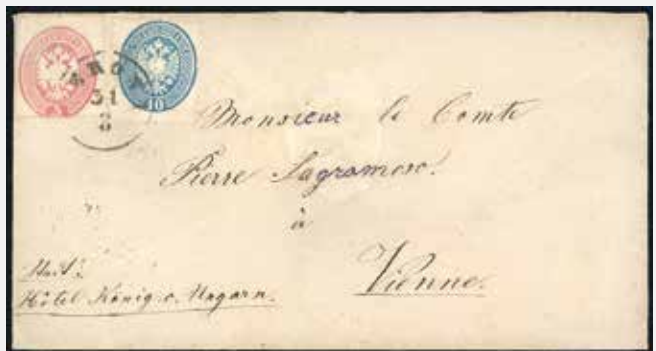 10
31
8
Monsieur le Comte
Pierre Sagramoso.
à
Vienne.
Hôtel König v. Ungarn.